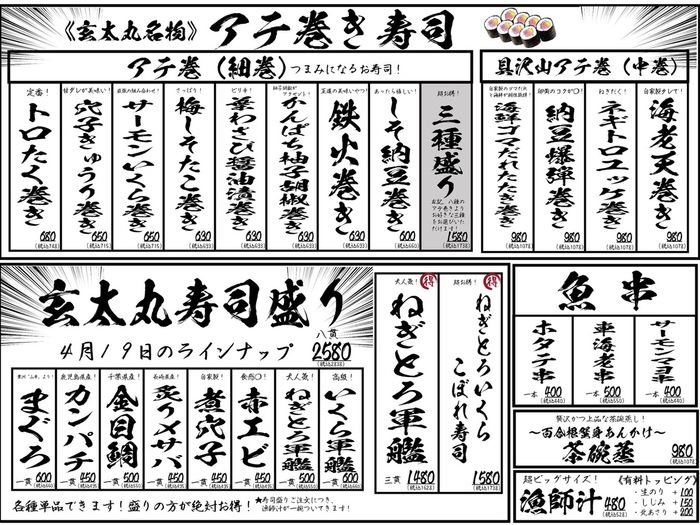 《玄太丸名物》 アテ巻き寿司
アテ巻（細巻） つまみになるお寿司！
超お得！
三種盛り
左記、八種の
アテ巻きより
お好きな三種
をお選びいた
だけます！
1580
(税込1738)
あったら嬉しい！
しそ納豆巻き
600
(税込660)
王道の美味いやつ！
鉄火巻き
630
(税込693)
柚子胡椒が
アクセント！
かんぱち柚子胡椒巻き
630
(税込693)
ピリ辛！
葉わさび醤油漬巻き
630
(税込693)
さっぱり！
梅しそたこ巻き
630
(税込693)
サーモンいくら巻き
650
(税込715)
甘ダレが美味い！
穴子きゅうり巻き
650
(税込715)
定番！
トロたく巻き
680
(税込748)
具沢山アテ巻（中巻）
自家製タレで！
海老天巻き
980
(税込1078)
ねぎだく！
ネギトロユッケ巻き
980
(税込1078)
卵黄のコクが〇！
納豆爆弾巻き
980
(税込1078)
自家製のゴマだれ
と海鮮が相性抜群！
海鮮ゴマだれたたき巻き
980
(税込1078)
玄太丸寿司盛り
4月19日のラインナップ
八貫
2580
(税込2838)
高級！
いくら軍艦
一貫 500
(税込550)
大人気！
ねぎとろ軍艦
一貫 500
(税込550)
食感〇！
赤エビ
一貫 450
(税込495)
自家製！
煮穴子
一貫 450
(税込495)
長崎県産！
炙り〆サバ
一貫 450
(税込495)
千葉県産！
金目鯛
一貫 500
(税込550)
鹿児島県産！
カンパチ
一貫 450
(税込495)
豊洲「山幸」より！
まぐろ
一貫 600
(税込660)
各種単品できます！盛りの方が絶対お得！
★寿司盛りご注文につき、
漁師汁が一椀ついてきます！
得
超お得！
ねぎとろいくら
こぼれ寿司
1580
(税込1738)
得
大人気！
ねぎとろ軍艦
三貫 1480
(税込1628)
魚串
サーモンマヨ串
一本 400
(税込440)
車海老串
一本 500
(税込550)
ホタテ串
一本 400
(税込440)
贅沢かつ上品な茶碗蒸し！
～百合根蟹身あんかけ～
茶碗蒸
980
(税込1078)
超ビッグサイズ！
漁師汁
480
(税込528)
（有料トッピング）
・生のり +100
・しじみ +150
・北あさり +200